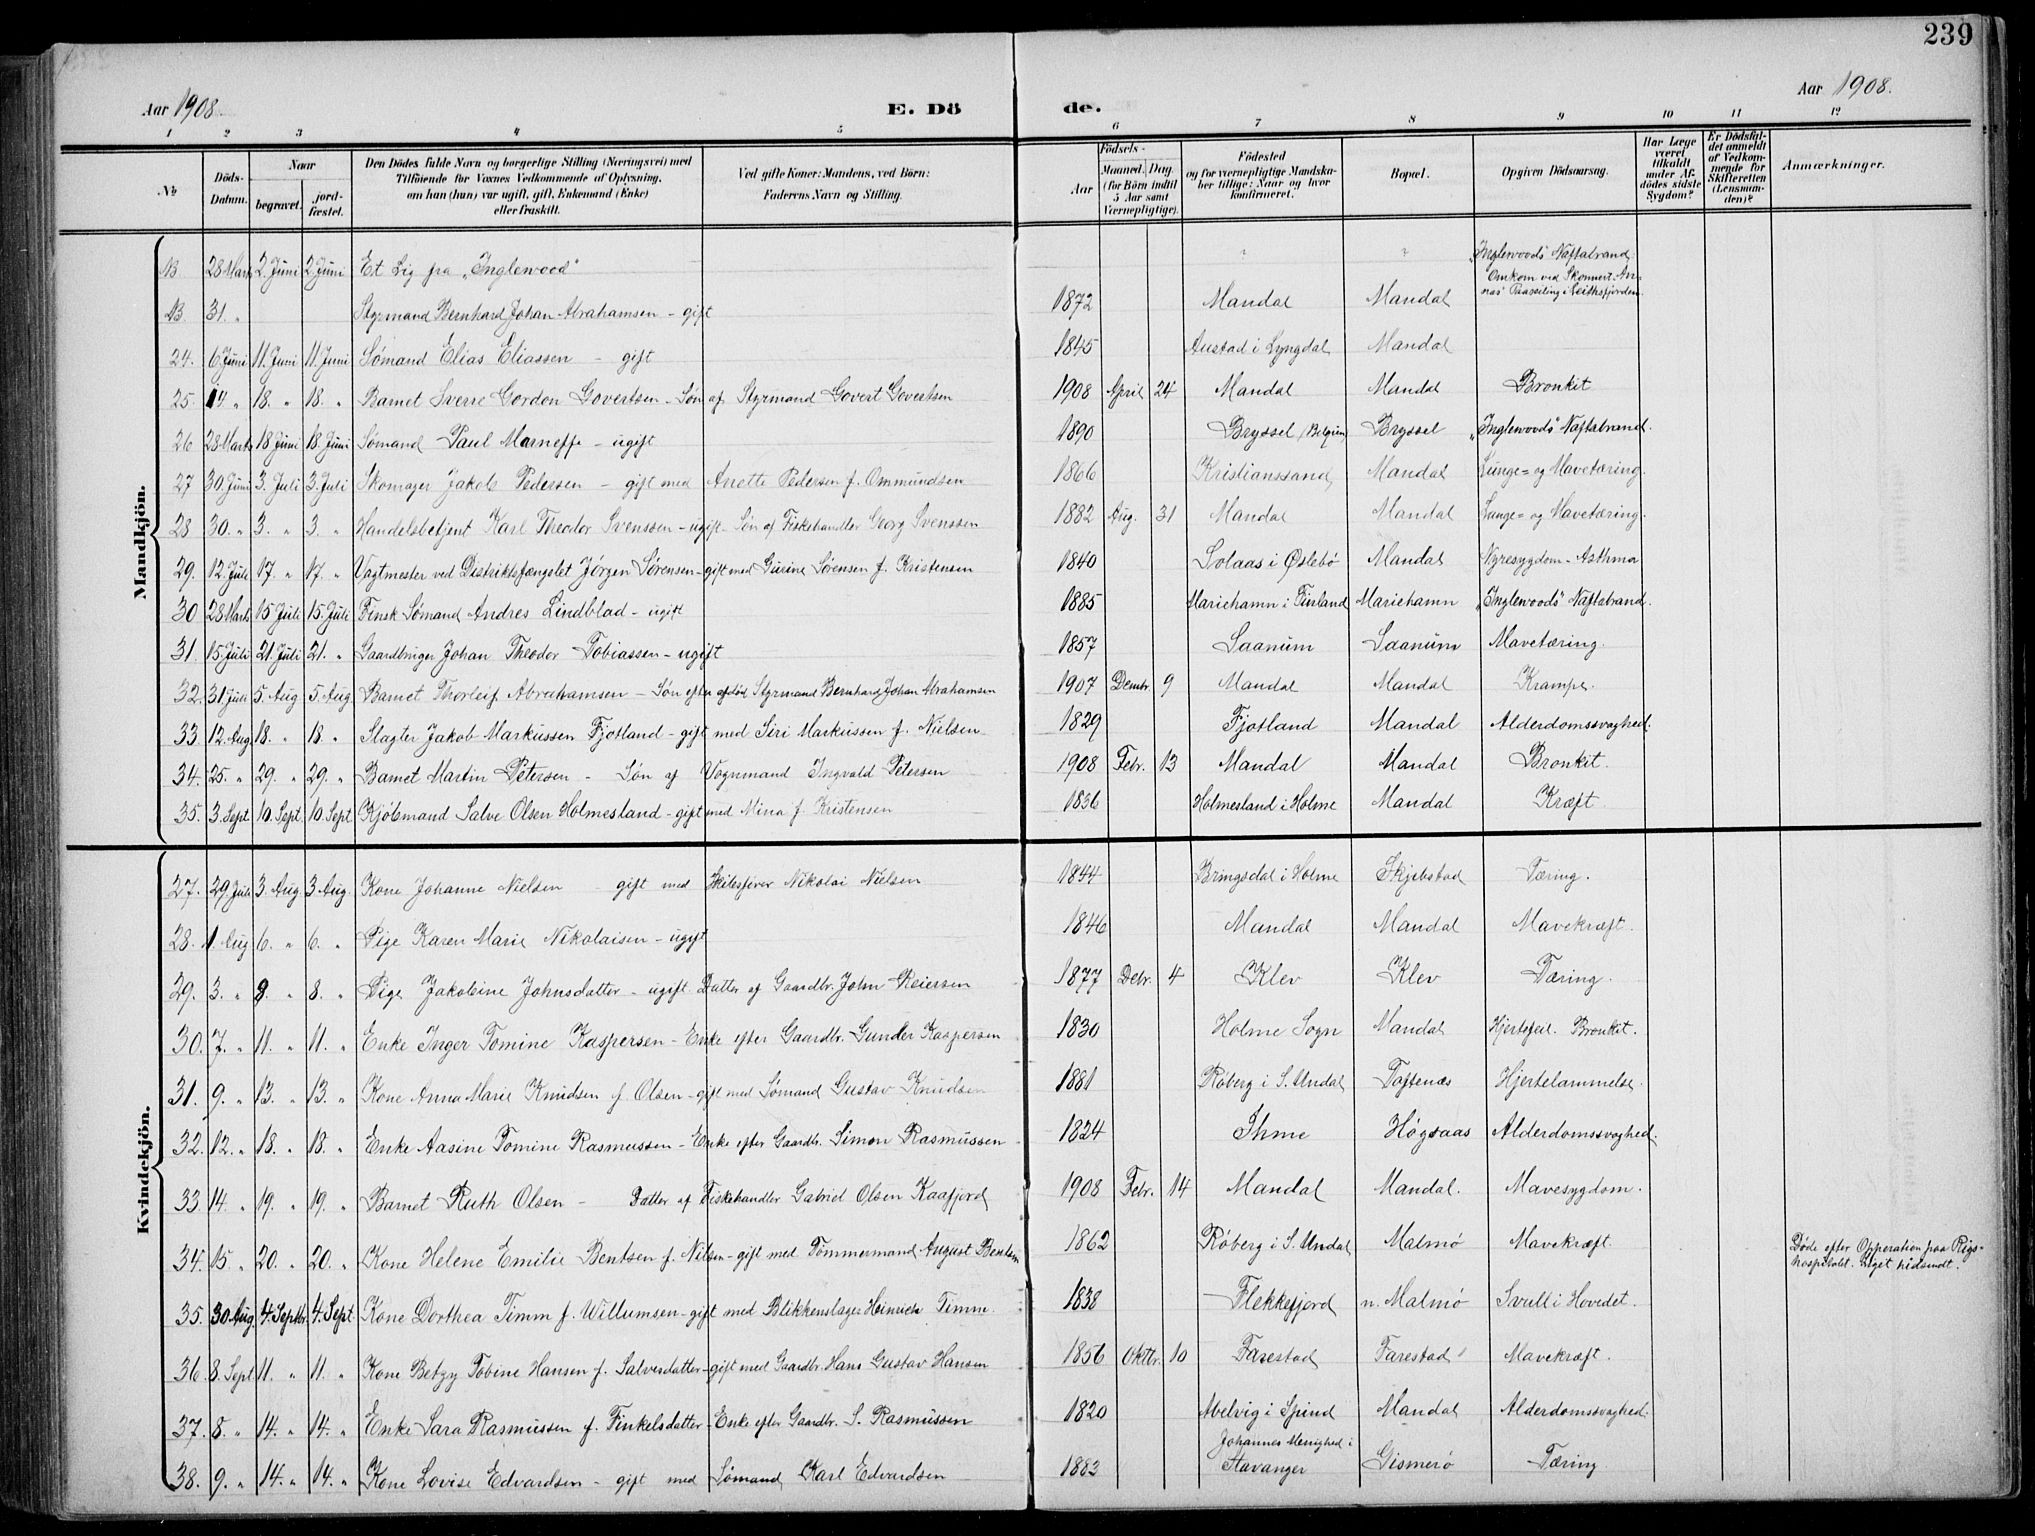 239
Aar 1908.
E. Dö de.
Aar 1908.
1 2 3 4 5 6 7 8 9 10 11 12
No
Döds-Datum.
Naar
begravet.
jordfæstet.
Den Dödes fulde Navn og borgerlige Stilling (Næringsvei) med
Tilföiende for Voxnes Vedkommende af Oplysning,
om han (hun) var ugift, gift, Enkemand (Enke)
eller fraskilt.
Ved gifte Koner: Mandens, ved Börn:
Faderens Navn og Stilling.
Födsels-
Aar
Maaned. Dag.
(for Börn indtil
5 Aar samt
Værnepligtige).
Födested
og for værnepligtige Mandskaber tillige: Naar og hvor
konfirmeret.
Bopæl.
Opgiven Dödsaarsag.
Har Læge
været
tilkaldt
under Afdödes sidste
Sygdom?
Er Dödsfaldet anmeldt
af Vedkommende for
Skifteretten
(Lensmanden)?
Anmærkninger.
Mandkjön.
NB 28 Marts 2 Juni 2 Juni Et Lig fra "Inglewood" ? ? "Inglewoods" Naftabrand.
NB 31. " Styrmand Bernhard Johan Abrahamsen - gift 1872 Mandal Mandal Omkom ved Skonnert Annas Paaseiling i Leithsfjorden.
24. 6 Juni 11 Juni 11 Juni Sømand Elias Eliassen - gift 1845 Austad i Lyngdal Mandal
25. 14 " 18. " 18. " Barnet Sverre Gordon Govertsen - Søn af Styrmand Govert Govertsen 1908 April 24 Mandal Mandal Bronkit
26 28 Marts 18 Juni 18 Juni Sømand Paul Marneffe - ugift 1890 Bryssel (Belgien) Bryssel "Inglewoods" Naftabrand.
27 30 Juni 3. Juli 3. Juli Skomager Jakob Pedersen - gift med Anette Pedersen f. Ommundsen 1866 Kristianssand Mandal Lunge= og Mavetæring.
28 30. " 3. " 3. " Handelsbetjent Karl Theodor Svenssen - ugift - Søn af Fiskehandler Georg Svenssen 1882 Aug. 31 Mandal Mandal Lunge= og Mavetæring.
29. 12 Juli 17. " 17. " Vagtmester ved Distriktsfængslet Jørgen Sørensen - gift med Gurine Sørensen f. Kristensen 1840 Solaas i Øslebø Mandal Nyresygdom - Asthma
30 28 Marts 15 Juli 15 Juli Finsk Sømand Andres Lindblad - ugift 1885 Mariehamn i Finland Mariehamn "Inglewoods" Naftabrand.
31. 15 Juli 21 Juli 21. " Gaardbruger Johan Theodor Tobiassen - ugift 1857 Saanum Saanum Mavetæring.
32. 31 Juli 5 Aug 5 Aug Barnet Thorleif Abrahamsen - Søn efter afdød Styrmand Bernhard Johan Abrahamsen 1907 Decmbr. 9 Mandal Mandal Krampe.
33 12. Aug 18. " 18. " Slagter Jakob Markussen Fjotland - gift med Siri Markussen f. Nielsen 1829 Fjotland Mandal Alderdomssvaghed.
34. 25. " 29. " 29. " Barnet Martin Petersen - Søn af Vognmand Ingvald Petersen 1908 Febr. 13 Mandal Mandal Bronkit.
35. 3. Sept 10. Sept 10. Sept Kjøbmand Salve Olsen Holmesland - gift med Mina f. Kristensen 1836 Holmesland i Holme Mandal Kræft
Kvindekjön.
27. 29 Juli 3. Aug 3 Aug. Kone Johanne Nielsen - gift med Skibsfører Nikolai Nielsen 1844 Bringsdal i Holme Skjebstad Tæring.
28. 1. Aug 6. " 6. " Pige Karen Marie Nikolaisen - ugift 1846 Mandal Mandal Mavekræft.
29. 3. " 8. " 8. " Pige Jakobine Johnsdatter - ugift. Datter af Gaardbr. John Reiersen 1877 Debr. 4 Klev Klev Tæring.
30. 7. " 11. " 11. " Enke Inger Tomine Kaspersen - Enke efter Gaardbr. Gunder Kaspersen 1830 Holme Sogn Mandal Hjertefeil. Bronkit.
31. 9. " 13. " 13. " Kone Anna Marie Knudsen f. Olsen - gift med Sømand Gustav Knudsen 1881 Røberg i S. Undal Toftenæs Hjertelammelse.
32. 12. " 18. " 18. " Enke Aasine Tomine Rasmussen - Enke efter Gaardbr. Simon Rasmussen 1824 Ihme Høgsaas Alderdomssvaghed.
33 14. " 19. " 19. " Barnet Ruth Olsen - Datter af Fiskehandler Gabriel Olsen Kaafjord 1908 Febr. 14 Mandal Mandal. Mavesygdom.
34. 15 " 20. " 20. " Kone Helene Emilie Bentsen f. Nilsen - gift med Tømmermand August Bentsen 1862 Røberg i S. Undal Malmø Mavekræft. Døde efter Opperation paa Rigshospitalet. Liget hidsendt.
35. 30 Aug 4. Septbr. 4. Sept. Kone Dorthea Timm f. Willumsen - gift med Blikkenslager Heinrich Timm. 1838 Flekkefjord n. Malmø Svull i Hovedet.
36. 8. Sept 11. " 11. " Kone Betzy Tobine Hansen f. Salvesdatter - gift med Gaardbr. Hans Gustav Hansen 1856 Oktbr. 10 Farestad Farestad Mavekræft.
37. 8. " 14. " 14. " Enke Sara Rasmussen f. Finkelsdatter - Enke efter Gaardbr. S. Rasmussen 1820 Abelvig i Spind Mandal Alderdomssvaghed.
38. 9. " 14. " 14. " Kone Lovise Edvardsen - gift med Sømand Karl Edvardsen 1883 Johannes Menighed i Stavanger Gismerø Tæring